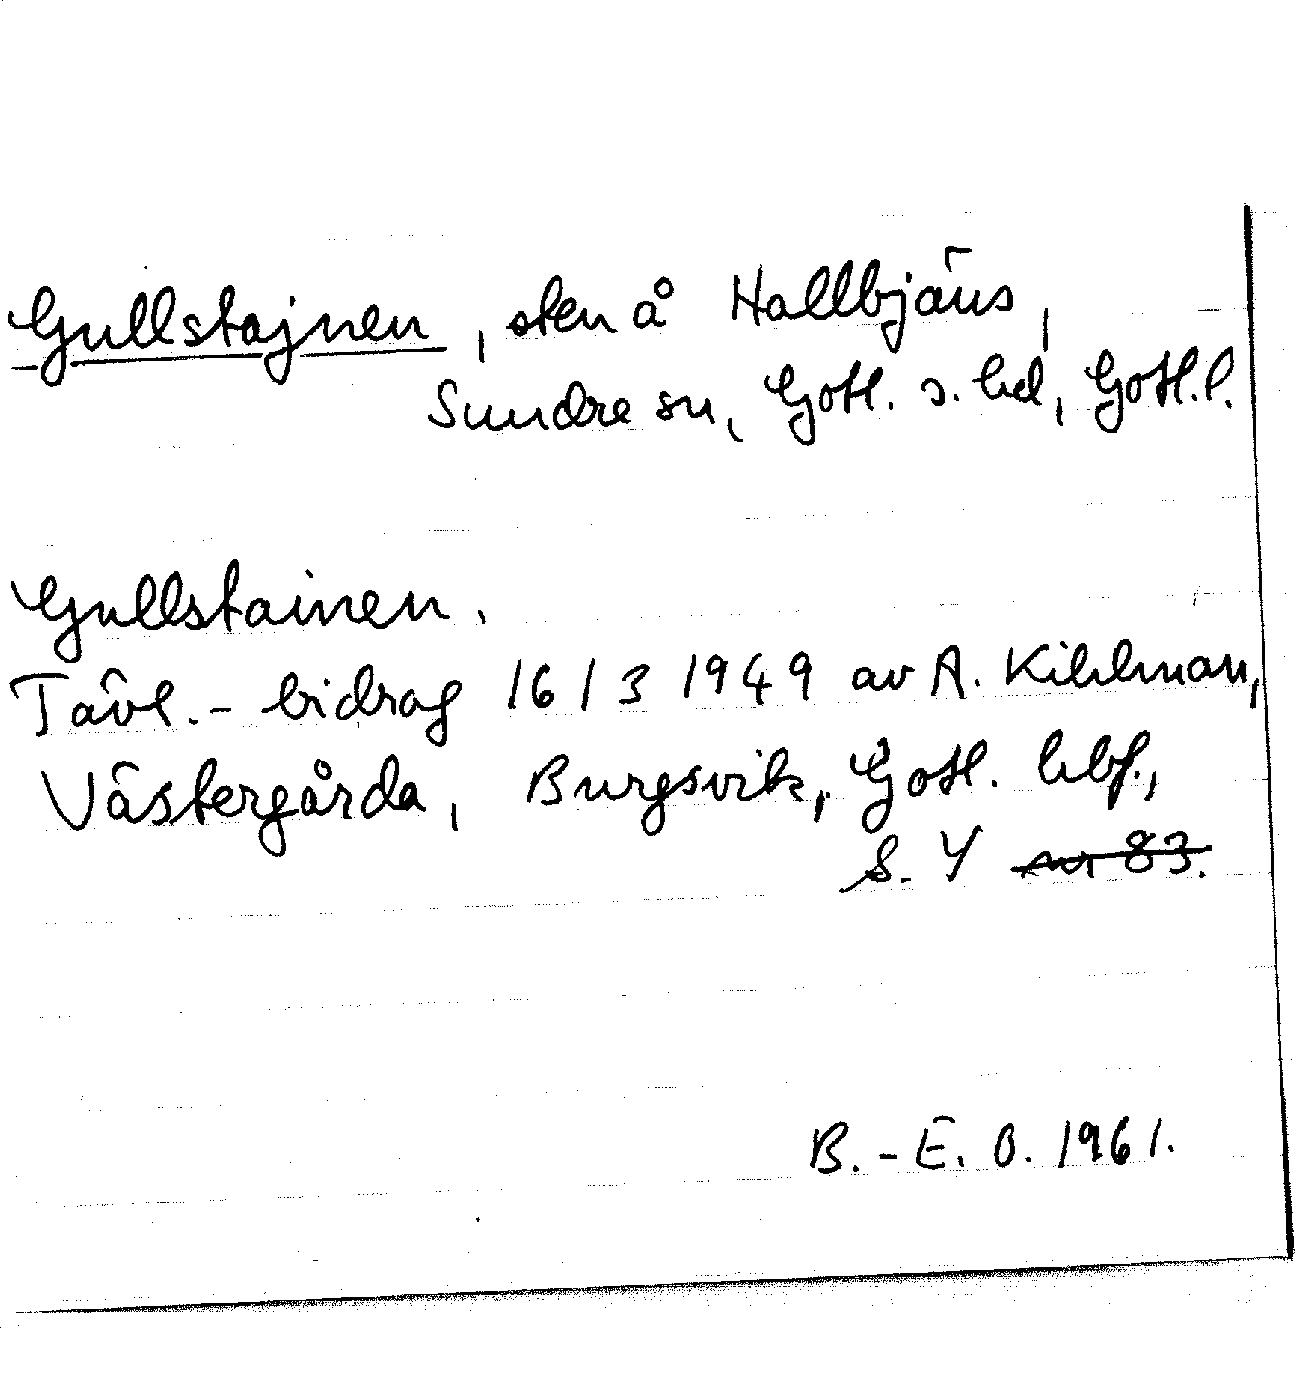 Gullstajnen, sten å Hallbjäns,
Sundre sn, Gotl. s. hd, Gotl. l.
Gullstainen.
Tävl.-bidrag 16/3 1949 av A. Kihlman,
Västergårda, Burgsvik, Gotl. hbf.,
S. 4 nr 83.
B.-E. O. 1961.